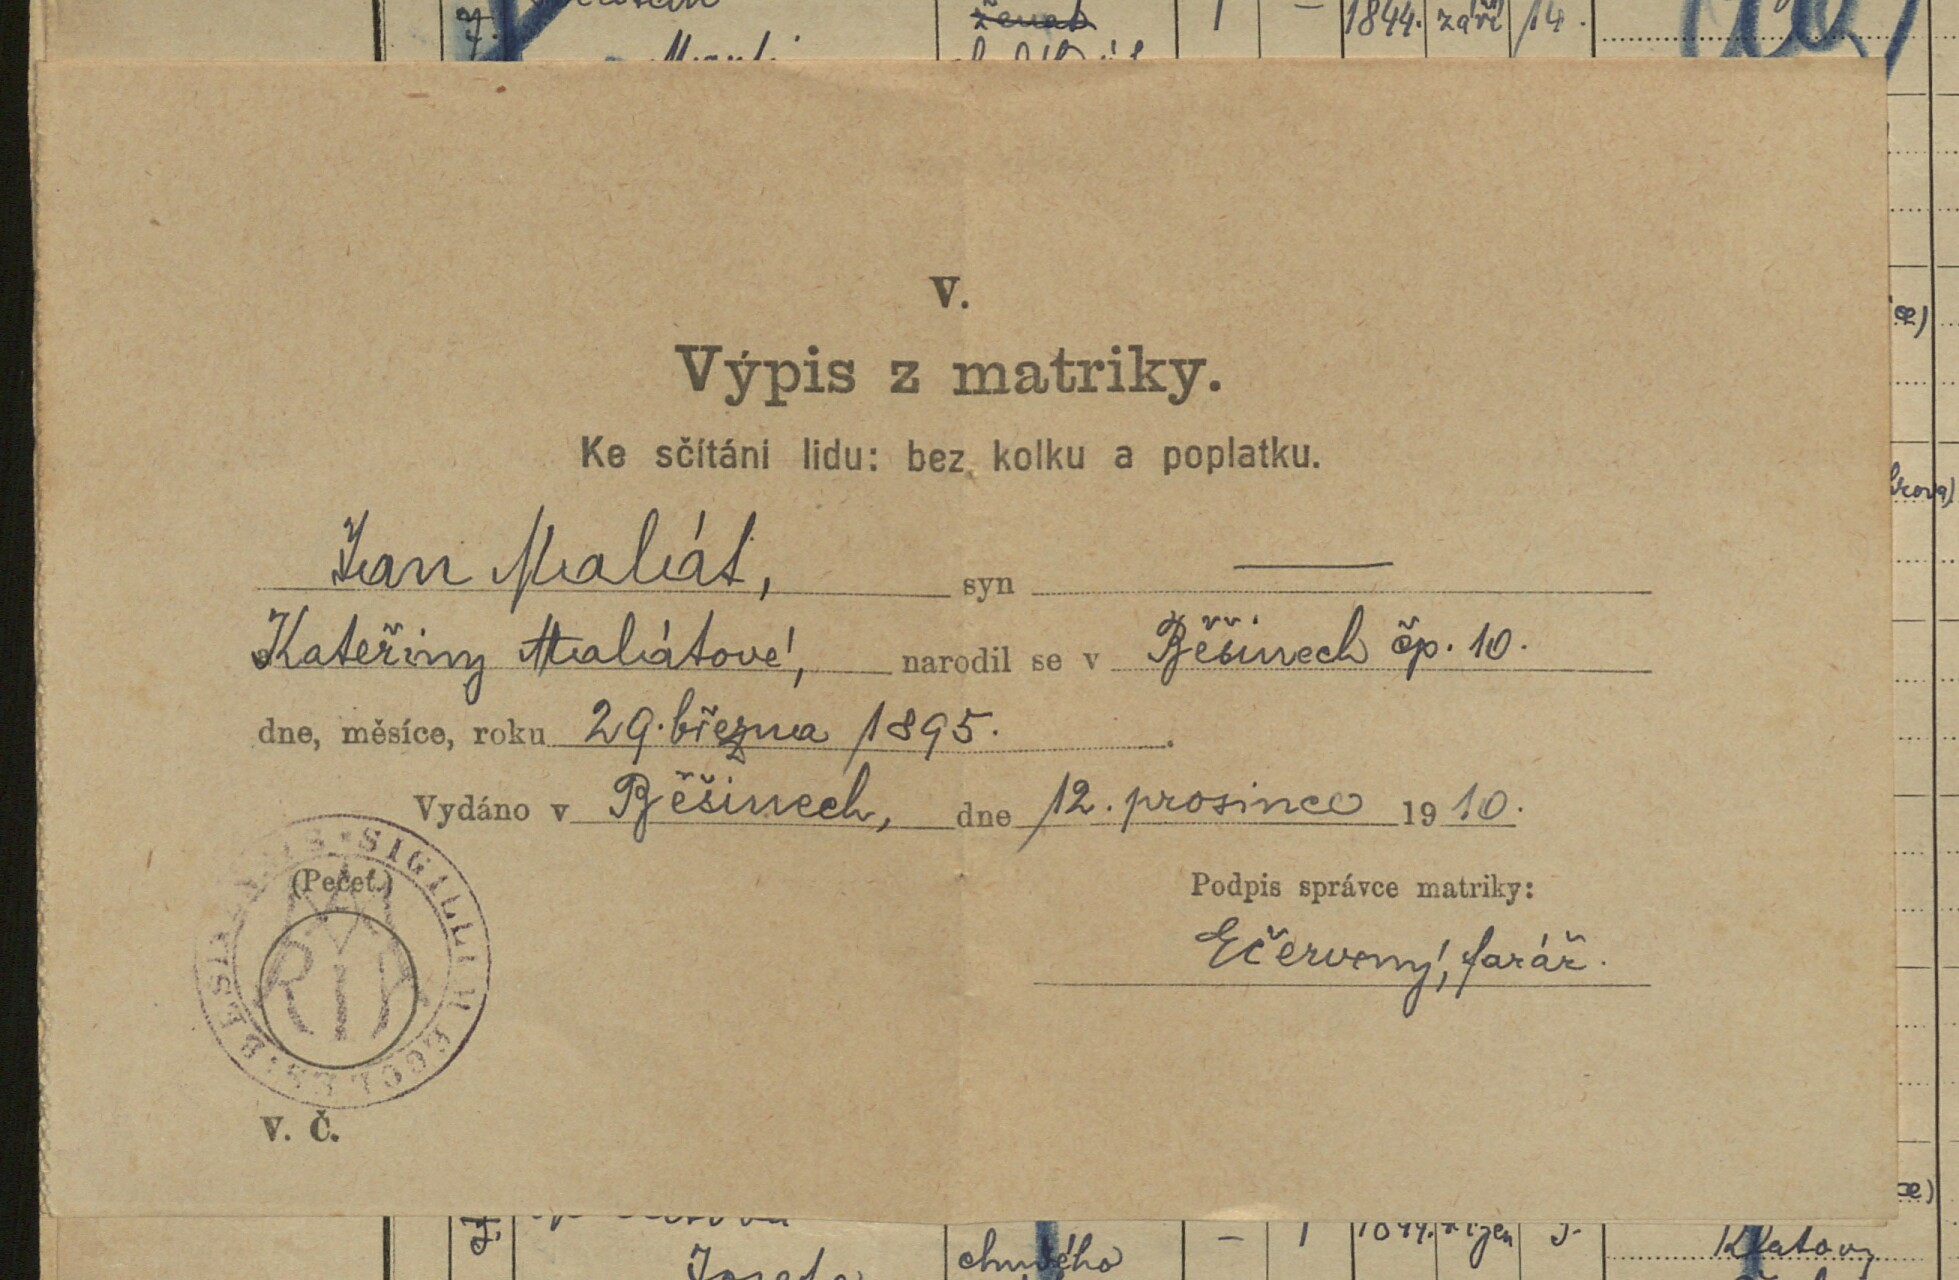 ženat 1 – 1844. září 14.
V.
Výpis z matriky.
Ke sčítání lidu: bez kolku a poplatku.
Jan Maliát, syn —
Kateřiny Maliátové, narodil se v Běšinech čp. 10.
dne, měsíce, roku 29. března 1895.
Vydáno v Běšinech, dne 12. prosince 1910.
(Pečeť.)
SIGILLUM ECCLES. BESI
Podpis správce matriky:
Ečervený, farář.
V. Č.
– 1
chudého Klatovy
Josefa